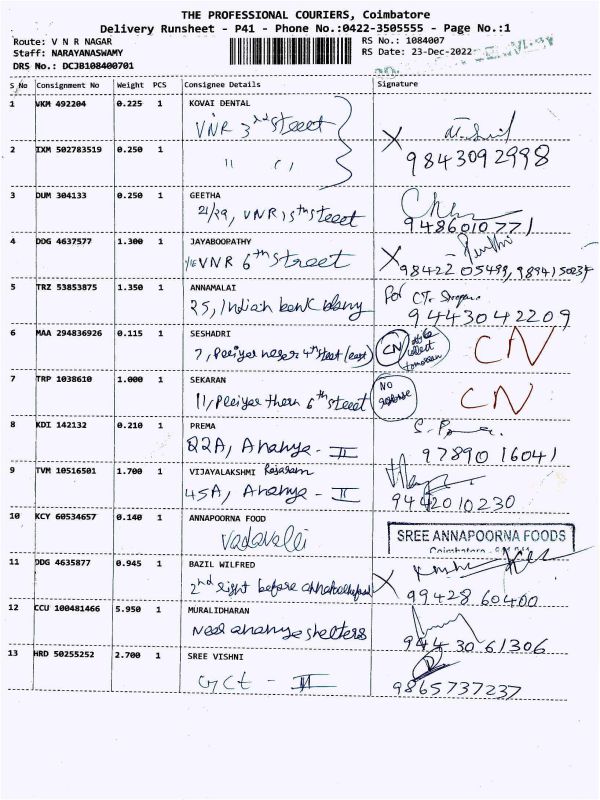 THE PROFESSIONAL COURIERS, Coimbatore
Delivery Runsheet - P41 - Phone No.:0422-3505555 - Page No.:1
Route: V N R NAGAR
RS No.: 1084007
Staff: NARAYANASWAMY
RS Date: 23-Dec-2022
DRS No.: DCJB108400701
S No Consignment No Weight PCS Consignee Details Signature
1 VKM 492204 0.225 1 KOVAI DENTAL
VNR 3rd Street
2 IXM 502783519 0.250 1 " "
9843092998
3 DUM 304133 0.250 1 GEETHA
21/29, VNR 15th Street
9486010771
4 DDG 4637577 1.300 1 JAYABOOPATHY
VNR 6th Street
9842205499, 9894150234
5 TRZ 53853875 1.350 1 ANNAMALAI
25, Indian bank
For
9443042209
6 MAA 294836926 0.115 1 SESHADRI
7, Periyar nager 4th Street (east) CN collect tomorrow CN
7 TRP 1038610 1.000 1 SEKARAN
11, 6th Street No response CN
8 KDI 142132 0.210 1 PREMA
Q2A, Ananya - II
9789016041
9 TVM 10516501 1.700 1 VIJAYALAKSHMI Rajaram
45A, Ananya - II
9442010230
10 KCY 60534657 0.140 1 ANNAPOORNA FOOD
Vadavalli
SREE ANNAPOORNA FOODS
11 DDG 4635877 0.945 1 BAZIL WILFRED
2nd right before
9942860400
12 CCU 100481466 5.950 1 MURALIDHARAN
Near ananya shelters
9443061306
13 HRD 50255252 2.700 1 SREE VISHNI
GCT - III
9865737237